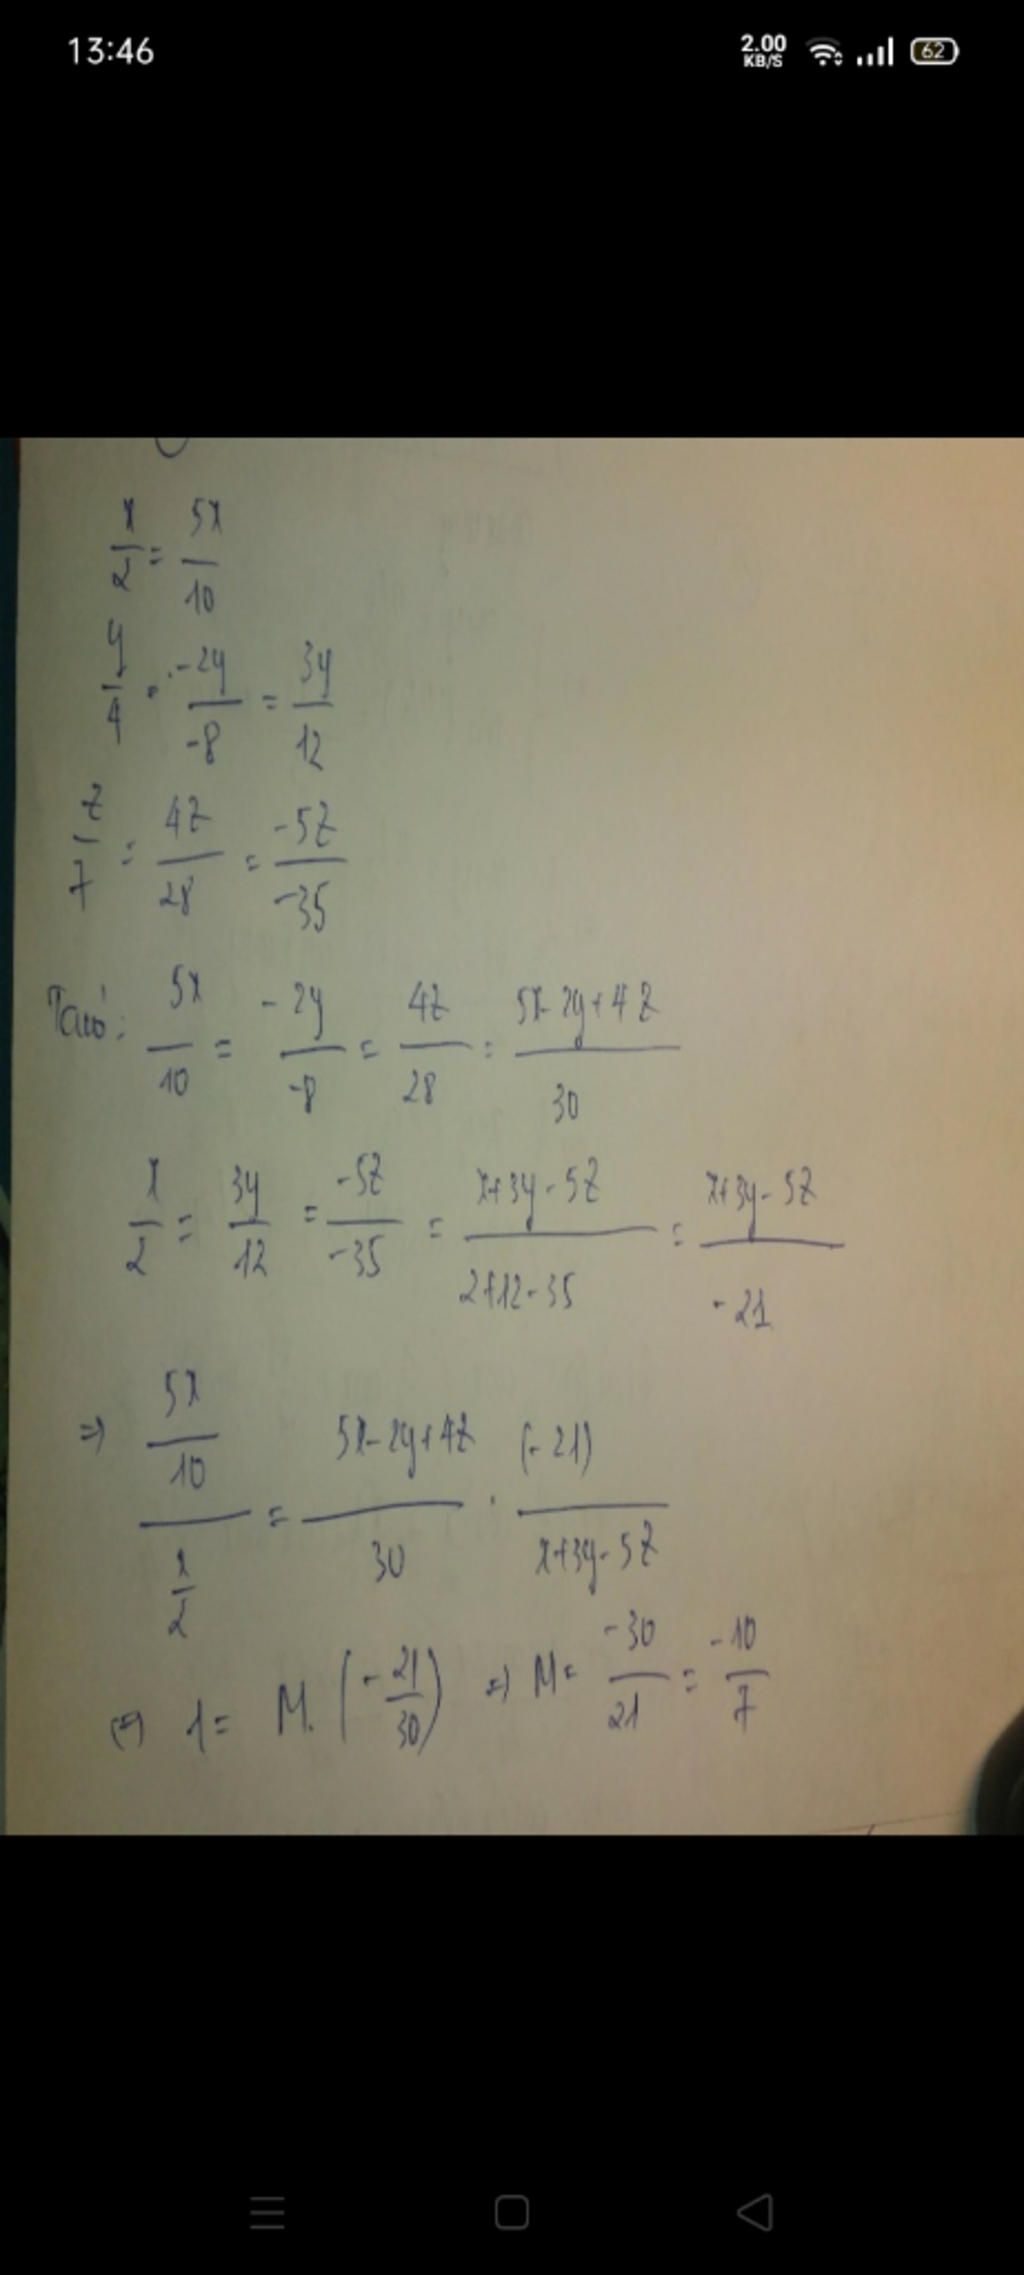 13:46 2.00 KB/S 62
x/2 = 5x/10
y/4 = -2y/-8 = 3y/12
z/7 = 4z/28 = -5z/-35
Ta có: 5x/10 = -2y/-8 = 4z/28 = 5x-2y+4z/30
x/2 = 3y/12 = -5z/-35 = x+3y-5z/2+12-35 = x+3y-5z/-21
=> 5x/10 / x/2 = 5x-2y+4z/30 . (-21)/x+3y-5z
<=> 1 = M. (-21/30) => M = -30/21 = -10/7